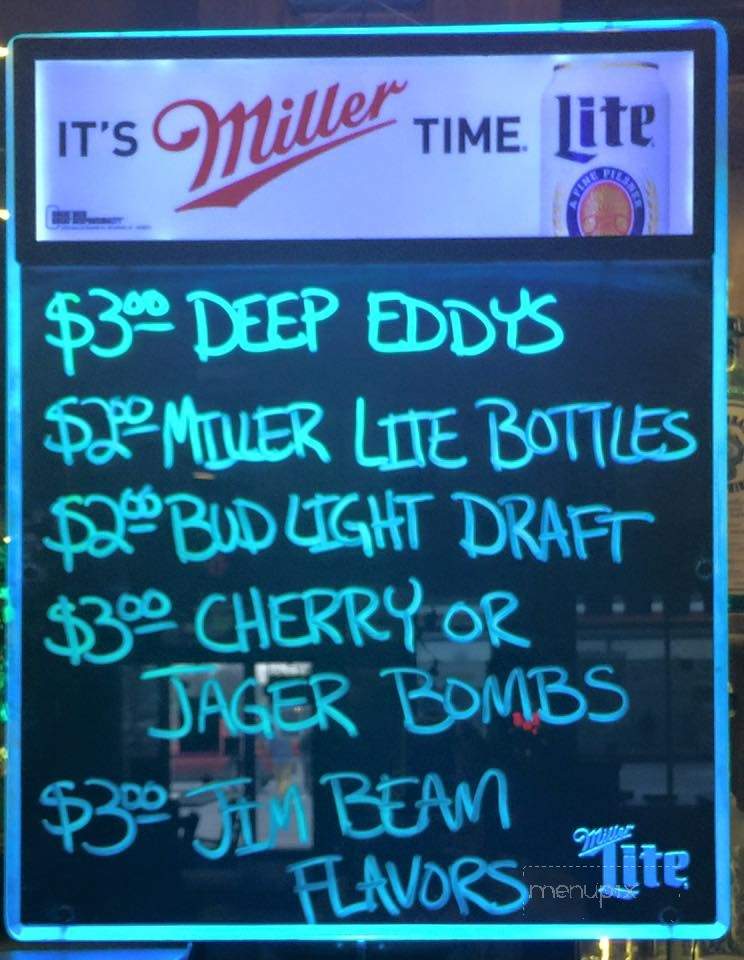 IT'S Miller TIME. Lite
A FINE PILSNER
$3.00 DEEP EDDYS
$2.00 MILLER LITE BOTTLES
$2.00 BUD LIGHT DRAFT
$3.00 CHERRY OR
JAGER BOMBS
$3.00 JIM BEAM
FLAVORS
Miller
Lite
menupix